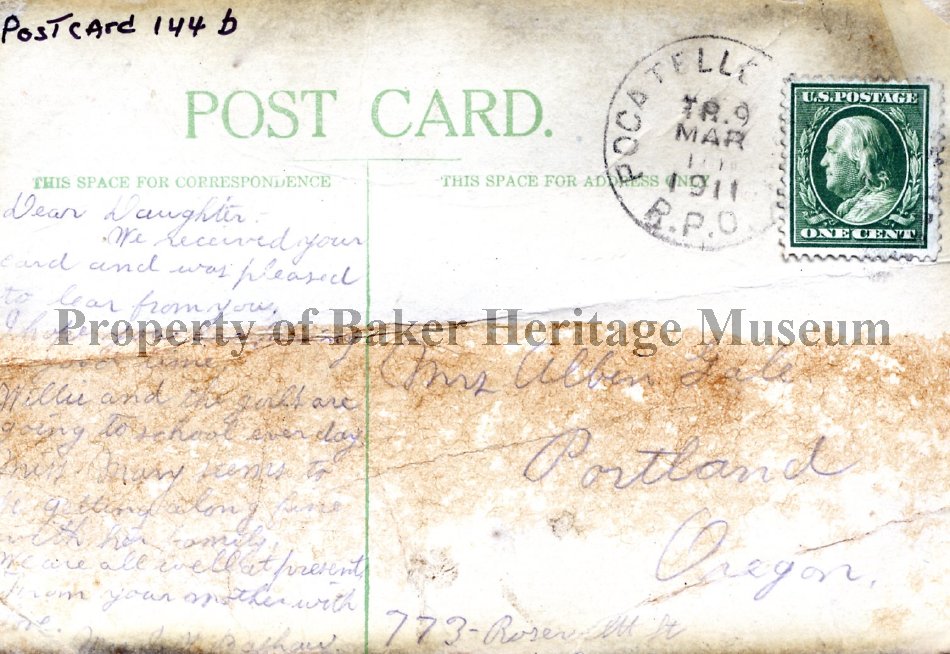 Postcard 144 b
POST CARD.
THIS SPACE FOR CORRESPONDENCE
THIS SPACE FOR ADDRESS ONLY
POCATELLO
TR.9
MAR
1911
R.P.O.
U.S. POSTAGE
ONE CENT
Dear Daughter-
We received your
card and was pleased
to hear from you.
I hope
good time
Willie and the girls are
going to school ever day
Miss Mary seems to
be getting along fine
with her family.
We are all well at present
From your mother with
love.
Property of Baker Heritage Museum
Mrs Alben
Portland
Oregon.
773- St